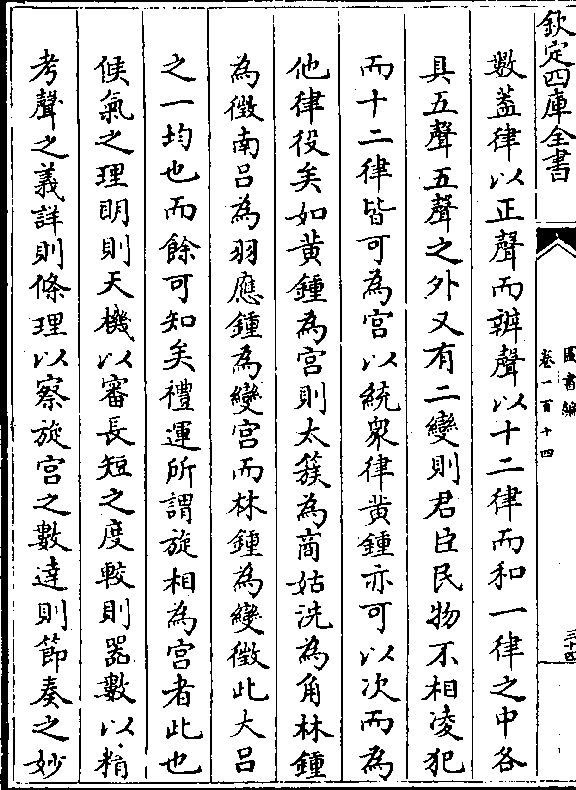 欽定四庫全書
圖書編
卷一百十四
三十四
數蓋律以正聲而辨聲以十二律而和一律之中各
具五聲五聲之外又有二變則君臣民物不相凌犯
而十二律皆可為宮以統衆律黄鍾亦可以次而為
他律役矣如黄鍾為宮則太簇為商姑洗為角林鍾
為徵南吕為羽應鍾為變宮而林鍾為變徵此大吕
之一均也而餘可知矣禮運所謂旋相為宮者此也
候氣之理明則天機以審長短之度較則器數以精
考聲之義詳則條理以察旋宮之數達則節奏之妙